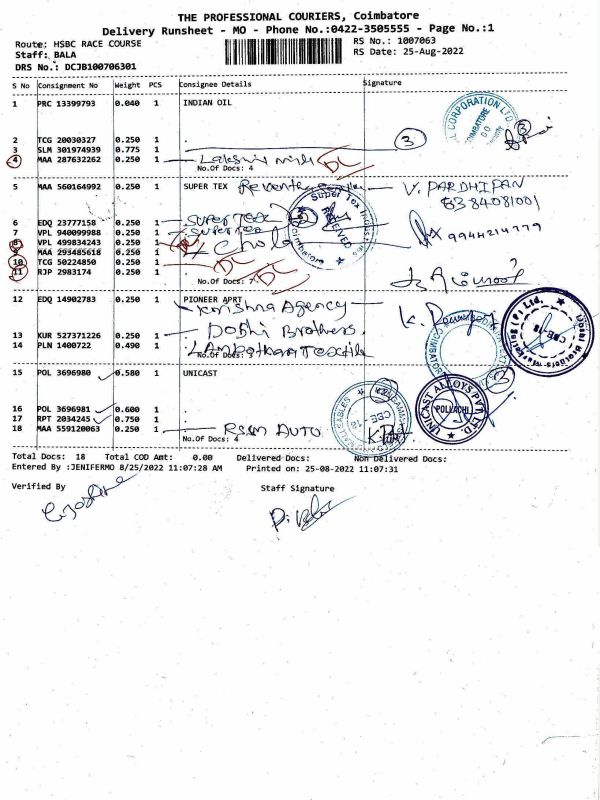 THE PROFESSIONAL COURIERS, Coimbatore
Delivery Runsheet - MO - Phone No.:0422-3505555 - Page No.:1
Route: HSBC RACE COURSE RS No.: 1007063
Staff: BALA RS Date: 25-Aug-2022
DRS No.: DCJB100706301
S No Consignment No Weight PCS Consignee Details Signature
1 PRC 13399793 0.040 1 INDIAN OIL
2 TCG 20030327 0.250 1 .
3 SLM 301974939 0.775 1 . 3
4 MAA 287632262 0.250 1 Lakshmi DL
No.Of Docs: 4
5 MAA 560164992 0.250 1 SUPER TEX V. PARDHIPAN
6384081001
6 EDQ 23777158 0.250 1 Super Tex
7 VPL 940099988 0.250 1 Super Tex
8 VPL 499834243 0.250 1 Chola 9944214779
9 MAA 293485618 0.250 1
10 TCG 50224850 0.250 1 DL
11 RJP 2983174 0.250 1 DL
No.Of Docs: 7
12 EDQ 14902783 0.250 1 PIONEER APRT
Krishna Agency
13 KUR 527371226 0.250 1 Dobhi Brothers
14 PLN 1400722 0.490 1 Textile
No.Of Docs:
15 POL 3696980 0.580 1 UNICAST 3
16 POL 3696981 0.600 1 .
17 RPT 2034245 0.750 1 .
18 MAA 559120063 0.250 1 RSM AUTO
No.Of Docs: 4
UNICAST ALLOYS PVT LTD
POLLACHI
Total Docs: 18 Total COD Amt: 0.00 Delivered Docs: Non Delivered Docs:
Entered By :JENIFERMO 8/25/2022 11:07:28 AM Printed on: 25-08-2022 11:07:31
Verified By Staff Signature